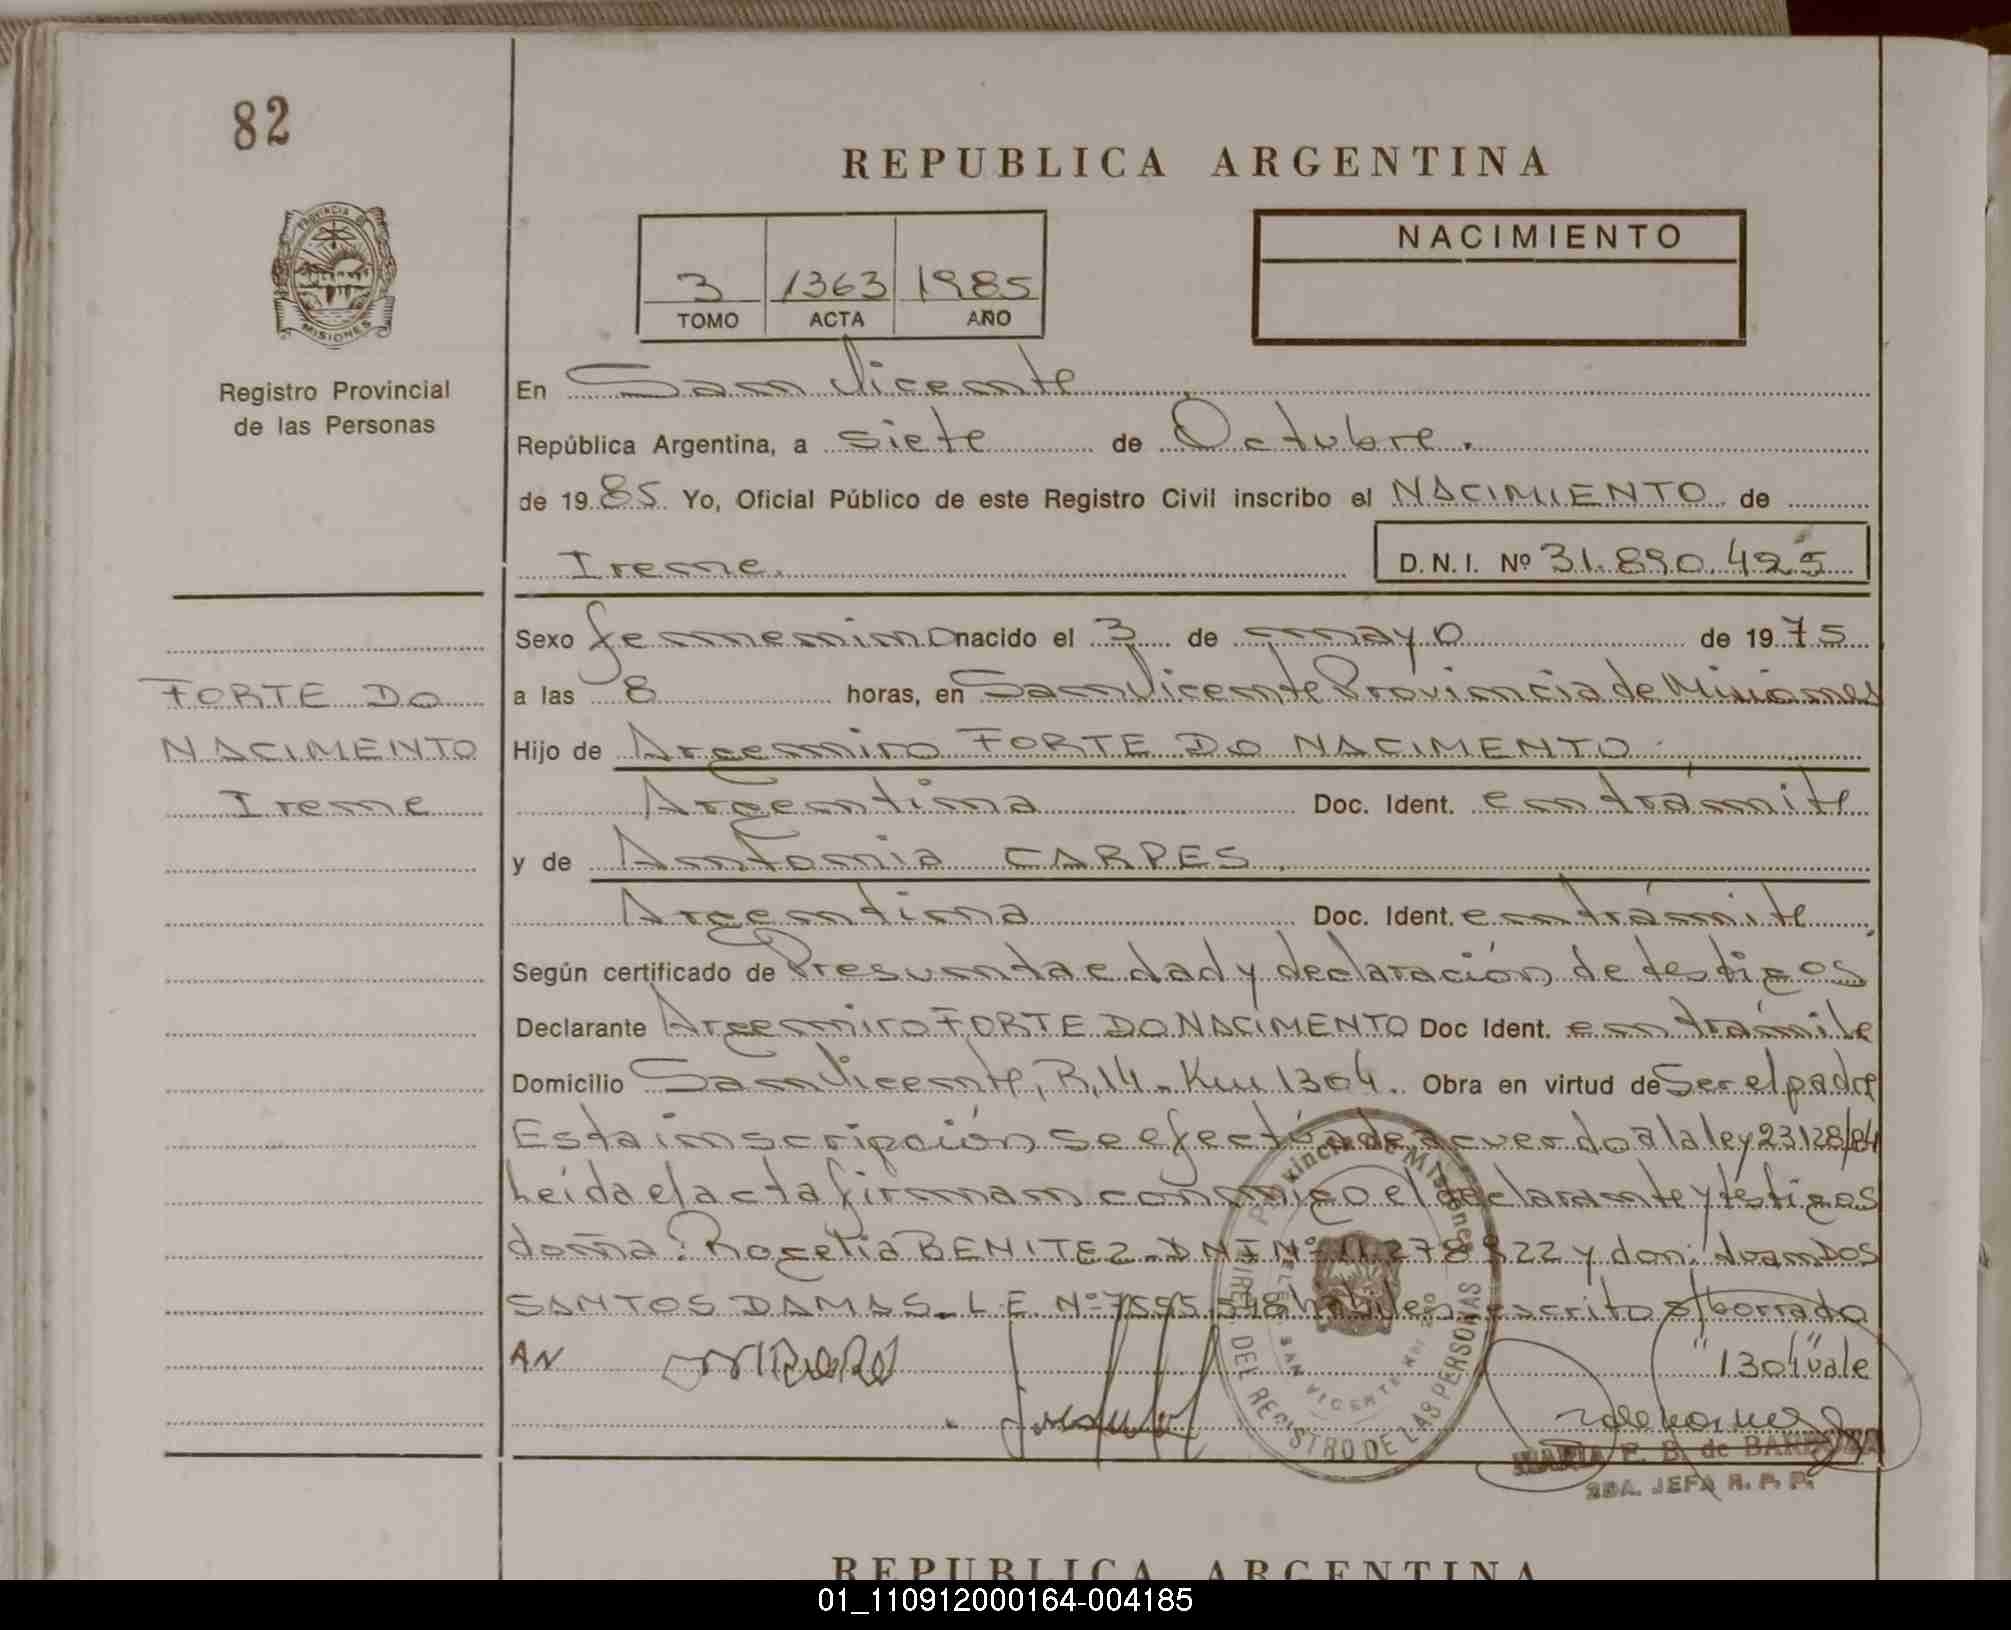 82
REPUBLICA ARGENTINA
PROVINCIA DE
MISIONES
Registro Provincial
de las Personas
3 1363 1985
TOMO ACTA AÑO
NACIMIENTO
En San Vicente
República Argentina, a siete de Octubre.
de 1985 Yo, Oficial Público de este Registro Civil inscribo el NACIMIENTO de
Irene. D.N.I. Nº 31.890.425
Sexo femenino nacido el 3 de mayo de 1975
FORTE DO
NACIMENTO
Irene
a las 8 horas, en San Vicente Provincia de Misiones
Hijo de Argemiro FORTE DO NACIMENTO
Argentina Doc. Ident. en trámite
y de Antonia CARPES.
Argentina Doc. Ident. en trámite
Según certificado de Presunta edad y declaración de testigos
Declarante Argemiro FORTE DO NACIMENTO Doc Ident. en trámite
Domicilio San Vicente, R, 14 - Km 1304. Obra en virtud de Ser el padre
Esta inscripción se efectúa de acuerdo a la ley 23.128/84
Leída el acta firman conmigo el declarante y testigos
doña: Rogelia BENITEZ - DNI Nº 11.278.922 y don: Juan DOS
SANTOS DAMAS. L E Nº 7555.518 hábiles, escrito s/borrado
AN "1304" vale
Provincia de Misiones
DEL REGISTRO DE LAS PERSONAS
SAN VICENTE
MARIA F. B. de
2DA. JEFA R. P. P.
REPUBLICA ARGENTINA
01_110912000164-004185